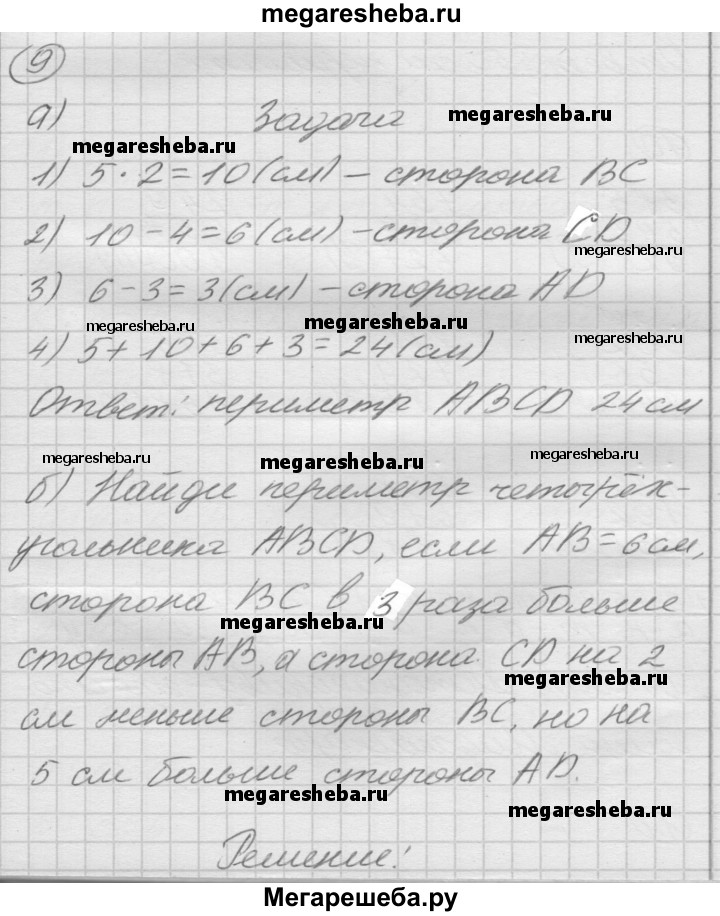 megaresheba.ru
9
а) Задача megaresheba.ru
megaresheba.ru
1) 5 · 2 = 10 (см) – сторона BC
2) 10 – 4 = 6 (см) – сторона CD
megaresheba.ru
3) 6 – 3 = 3 (см) – сторона AD
megaresheba.ru megaresheba.ru
4) 5 + 10 + 6 + 3 = 24 (см)
megaresheba.ru
Ответ: периметр ABCD 24 см
megaresheba.ru megaresheba.ru megaresheba.ru
б) Найди периметр четырёх-
угольника ABCD, если AB = 6 см,
сторона BC в 3 раза больше
megaresheba.ru
стороны AB, а сторона CD на 2
megaresheba.ru
см меньше стороны BC, но на
5 см больше стороны AD.
megaresheba.ru
megaresheba.ru
Решение:
Мегарешеба.ру